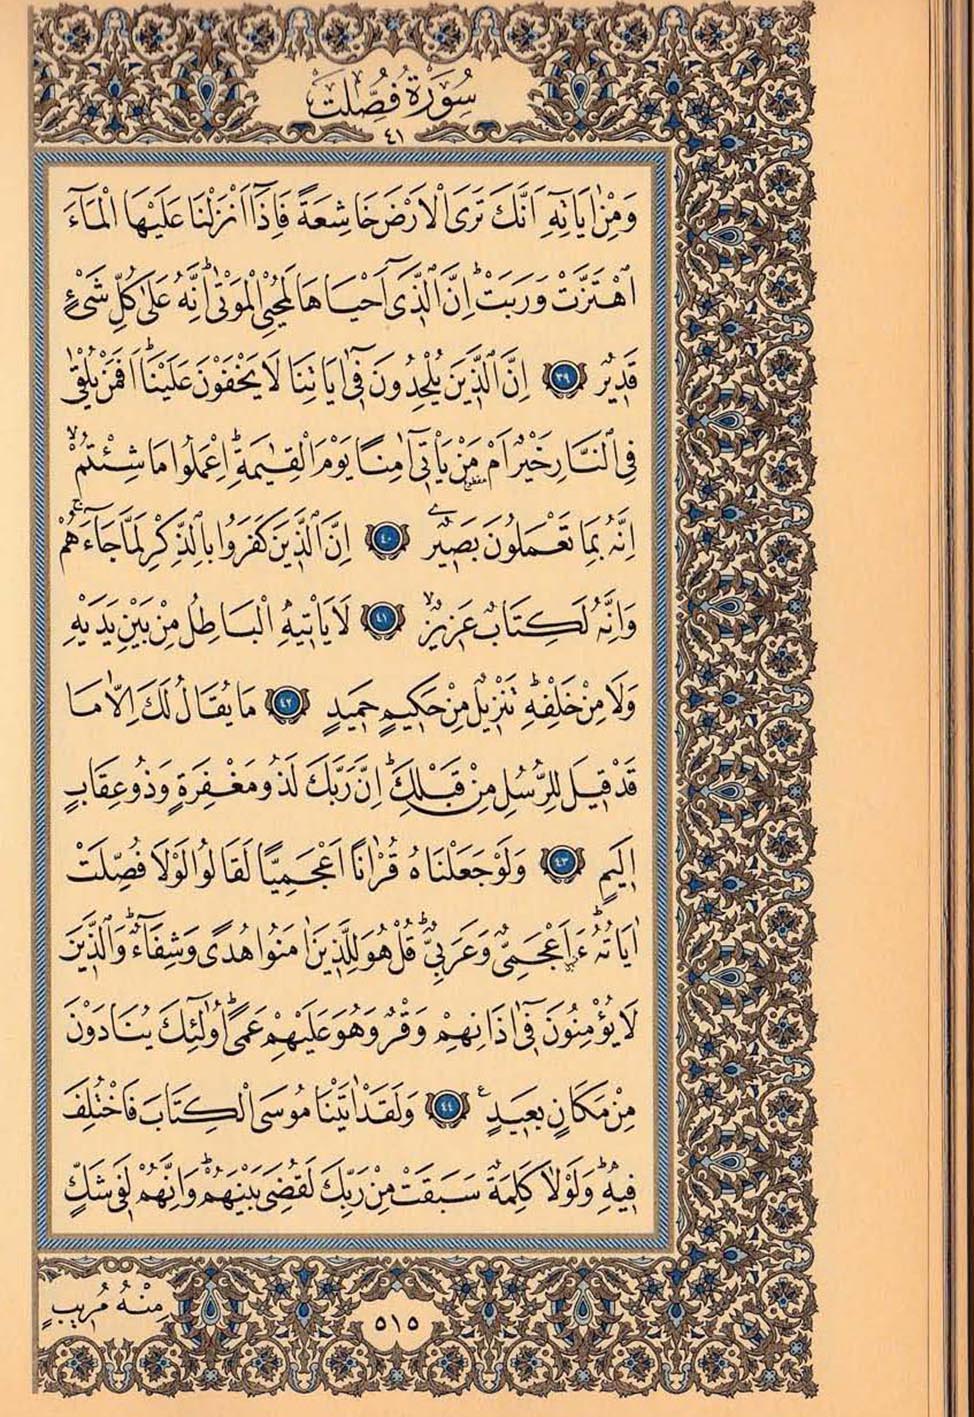 سُورَةُ فُصِّلَتْ
٤١
وَمِنْ اٰيَاتِهٖٓ اَنَّكَ تَرَى الْاَرْضَ خَاشِعَةً فَاِذَٓا اَنْزَلْنَا عَلَيْهَا الْمَٓاءَ
اهْتَزَّتْ وَرَبَتْۜ اِنَّ الَّذٖٓي اَحْيَاهَا لَمُحْيِ الْمَوْتٰىۜ اِنَّهُ عَلٰى كُلِّ شَيْءٍ
قَدٖيرٌ ٣٩ اِنَّ الَّذٖينَ يُلْحِدُونَ فٖٓي اٰيَاتِنَا لَا يَخْفَوْنَ عَلَيْنَاۜ اَفَمَنْ يُلْقٰى
فِي النَّارِ خَيْرٌ اَمْ مَنْ يَأْتٖٓي اٰمِنًا يَوْمَ الْقِيٰمَةِۜ اِعْمَلُوا مَا شِئْتُمْۙ
اِنَّهُ بِمَا تَعْمَلُونَ بَصٖيرٌ ٤٠ اِنَّ الَّذٖينَ كَفَرُوا بِالذِّكْرِ لَمَّا جَٓاءَهُمْۚ
وَاِنَّهُ لَكِتَابٌ عَزٖيزٌۙ ٤١ لَا يَأْتٖيهِ الْبَاطِلُ مِنْ بَيْنِ يَدَيْهِ
وَلَا مِنْ خَلْفِهٖۜ تَنْزٖيلٌ مِنْ حَكٖيمٍ حَمٖيدٍ ٤٢ مَا يُقَالُ لَكَ اِلَّا مَا
قَدْ قٖيلَ لِلرُّسُلِ مِنْ قَبْلِكَۜ اِنَّ رَبَّكَ لَذُو مَغْفِرَةٍ وَذُو عِقَابٍ
اَلٖيمٍ ٤٣ وَلَوْ جَعَلْنَاهُ قُرْاٰنًا اَعْجَمِيًّا لَقَالُوا لَوْلَا فُصِّلَتْ
اٰيَاتُهُۜ ءَاَعْجَمِيٌّ وَعَرَبِيٌّۜ قُلْ هُوَ لِلَّذٖينَ اٰمَنُوا هُدًى وَشِفَٓاءٌۜ وَالَّذٖينَ
لَا يُؤْمِنُونَ فٖٓي اٰذَانِهِمْ وَقْرٌ وَهُوَ عَلَيْهِمْ عَمًىۜ اُو۬لٰٓئِكَ يُنَادَوْنَ
مِنْ مَكَانٍ بَعٖيدٍ ع ٤٤ وَلَقَدْ اٰتَيْنَا مُوسَى الْكِتَابَ فَاخْتُلِفَ
فٖيهِۜ وَلَوْلَا كَلِمَةٌ سَبَقَتْ مِنْ رَبِّكَ لَقُضِيَ بَيْنَهُمْۜ وَاِنَّهُمْ لَفٖي شَكٍّ
مِنْهُ مُرٖيبٍ
٥١٥